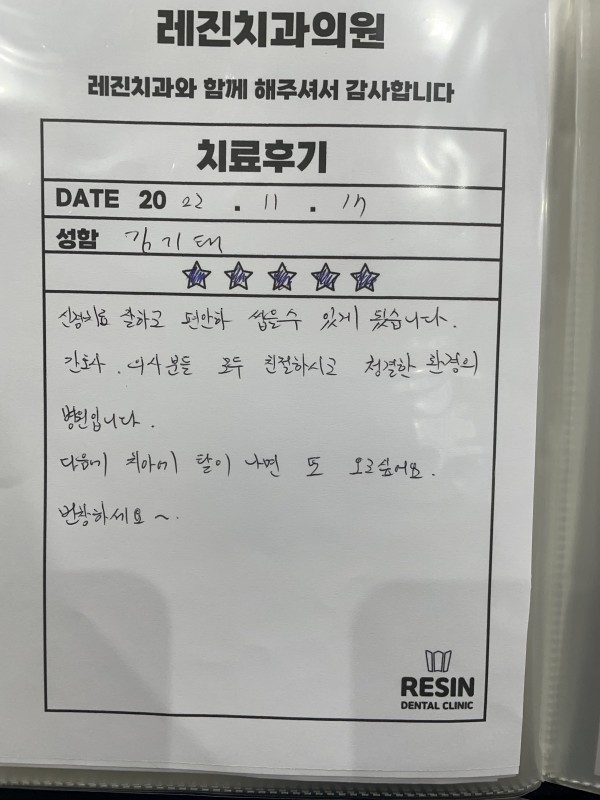 레진치과의원
레진치과와 함께 해주셔서 감사합니다
치료후기
DATE 20 22 . 11 . 17
성함 김기태
신경치료 잘하고 편안하 씹을수 있게 됬습니다.
간호사, 의사분들 모두 친절하시고 청결한 환경의
병원입니다.
다음에 치아에 탈이 나면 또 오고싶어요.
번창하세요~.
RESIN
DENTAL CLINIC